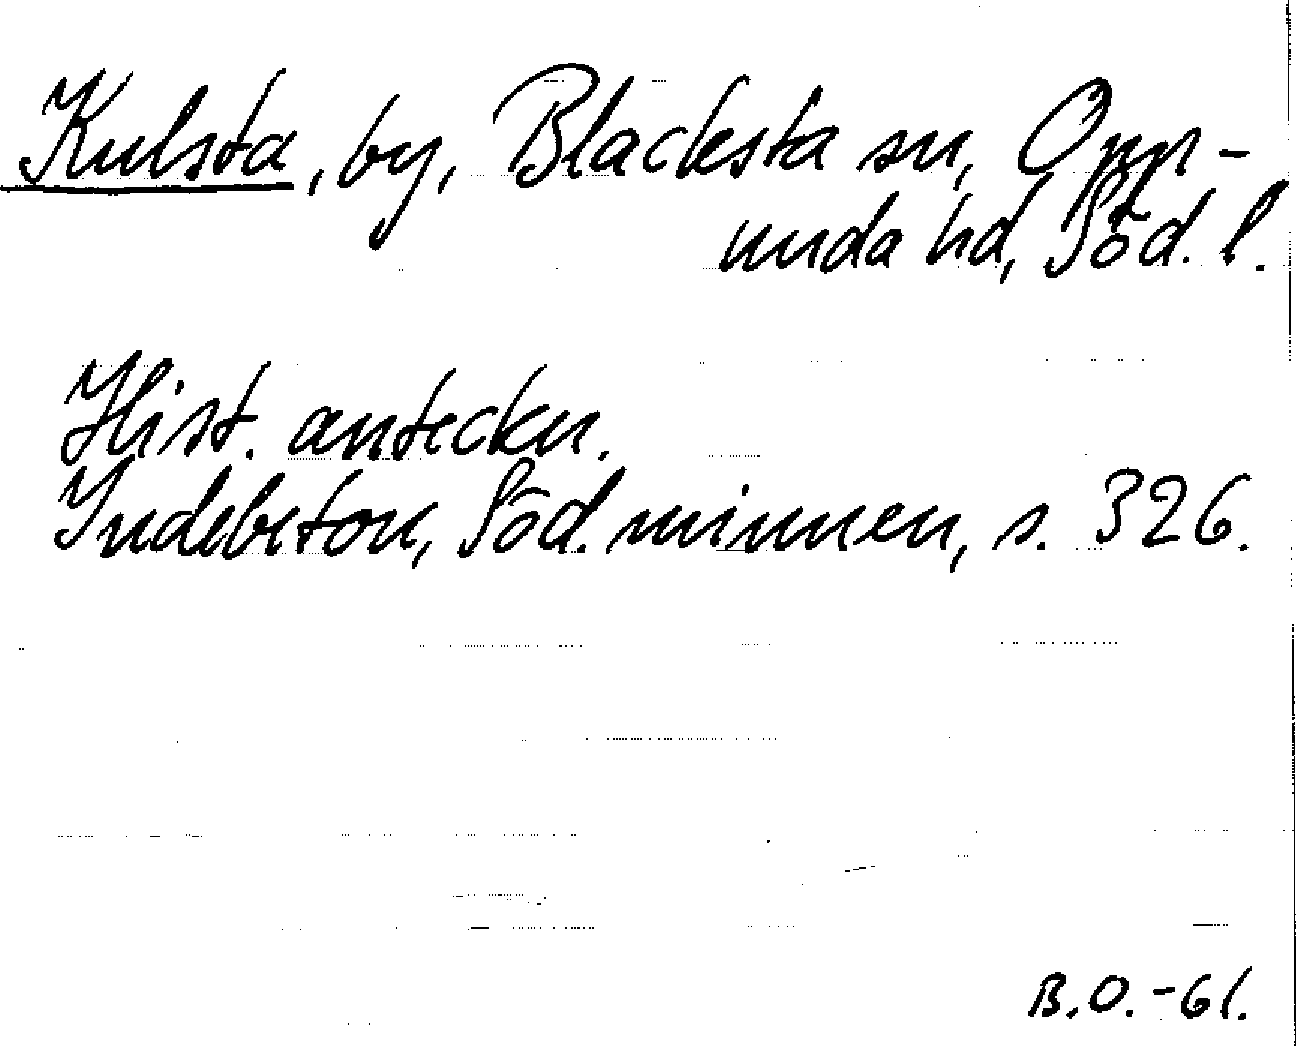 Kulsta, by, Blacksta sn, Opp-
unda hd, Söd. l.
Hist. anteckn.
Indebetou, Söd. minnen, s. 326.
B.O. -61.